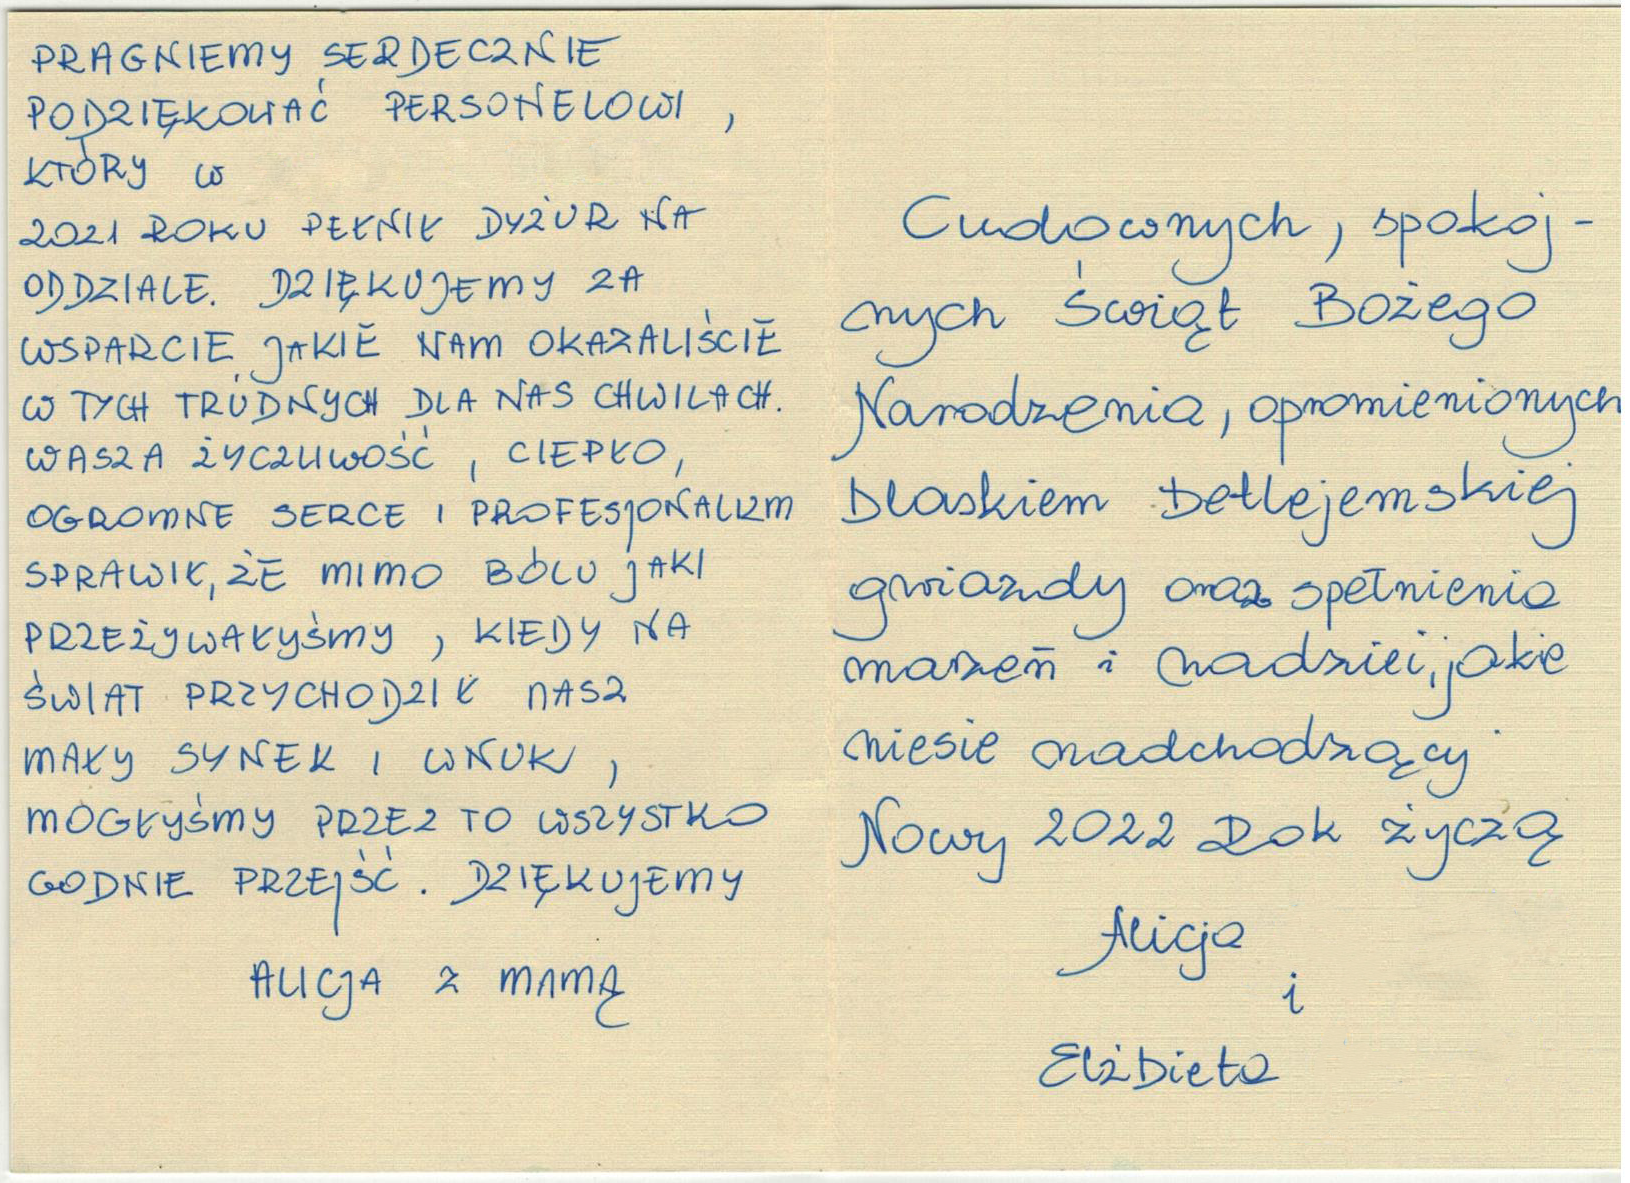 PRAGNIEMY SERDECZNIE
PODZIĘKOWAĆ PERSONELOWI,
KTÓRY W
2021 ROKU PEŁNIŁ DYŻUR NA
ODDZIALE. DZIĘKUJEMY ZA
WSPARCIE JAKIE NAM OKAZALIŚCIE
W TYCH TRUDNYCH DLA NAS CHWILACH.
WASZA ŻYCZLIWOŚĆ, CIEPŁO,
OGROMNE SERCE I PROFESJONALIZM
SPRAWIŁ, ŻE MIMO BÓLU JAKI
PRZEŻYWAŁYŚMY, KIEDY NA
ŚWIAT PRZYCHODZIŁ NASZ
MAŁY SYNEK I WNUK,
MOGŁYŚMY PRZEZ TO WSZYSTKO
GODNIE PRZEJŚĆ. DZIĘKUJEMY
ALICJA Z MAMĄ
Cudownych, spokoj-
nych Świąt Bożego
Narodzenia, opromienionych
blaskiem betlejemskiej
gwiazdy oraz spełnienia
marzeń i nadziei, jakie
niesie nadchodzący
Nowy 2022 Rok życzą
Alicja
i
Elżbieta